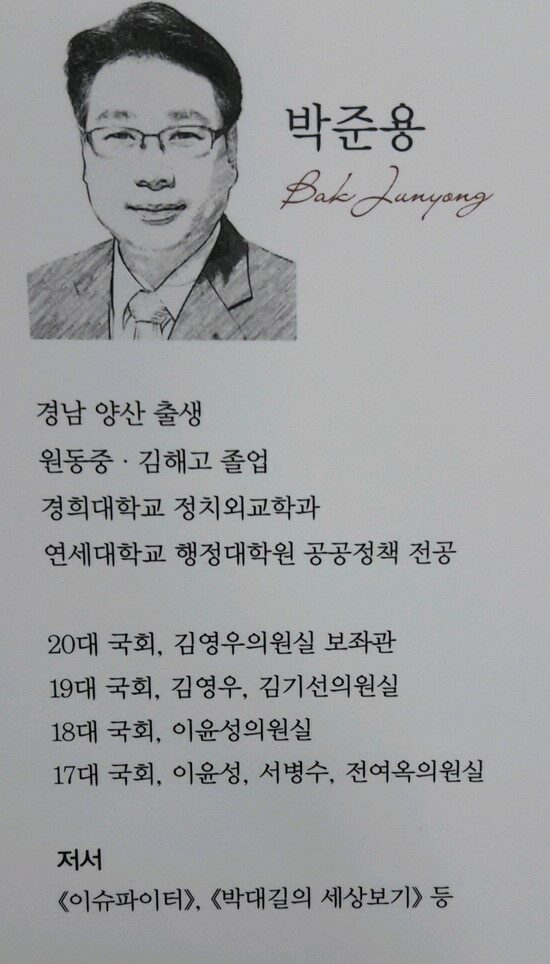 박준용
Bak Junyong
경남 양산 출생
원동중 · 김해고 졸업
경희대학교 정치외교학과
연세대학교 행정대학원 공공정책 전공
20대 국회, 김영우의원실 보좌관
19대 국회, 김영우, 김기선의원실
18대 국회, 이윤성의원실
17대 국회, 이윤성, 서병수, 전여옥의원실
저서
《이슈파이터》, 《박대길의 세상보기》 등